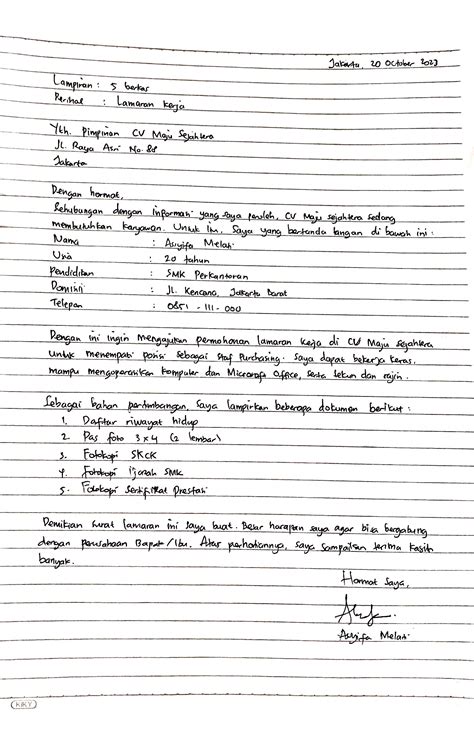 Jakarta, 20 October 2023
Lampiran : 5 berkas
Perihal : Lamaran Kerja
Yth. Pimpinan CV Maju Sejahtera
JL. Raya Asri No. 88
Jakarta
Dengan hormat,
Sehubungan dengan informasi yang saya peroleh, CV Maju Sejahtera sedang
membutuhkan karyawan. Untuk itu, Saya yang bertanda tangan di bawah ini :
Nama : Assyifa Melati
Usia : 20 tahun
Pendidikan : SMK Perkantoran
Domisili : JL. Kencana, Jakarta Barat
Telepon : 0851 - 111 - 000
Dengan ini ingin mengajukan permohonan lamaran kerja di CV Maju Sejahtera
untuk menempati posisi sebagai Staf Purchasing. Saya dapat bekerja keras,
mampu mengoperasikan komputer dan Microsoft Office, serta tekun dan rajin.
Sebagai bahan pertimbangan, Saya lampirkan beberapa dokumen berikut :
1. Daftar riwayat hidup
2. Pas foto 3 x 4 (2 lembar)
3. Fotokopi SKCK
4. Fotokopi ijazah SMK
5. Fotokopi Sertifikat Prestasi
Demikian surat lamaran ini saya buat. Besar harapan saya agar bisa bergabung
dengan perusahaan Bapak/Ibu. Atas perhatiannya, saya sampaikan terima kasih
banyak.
Hormat Saya,
Assyifa Melati
KIKY